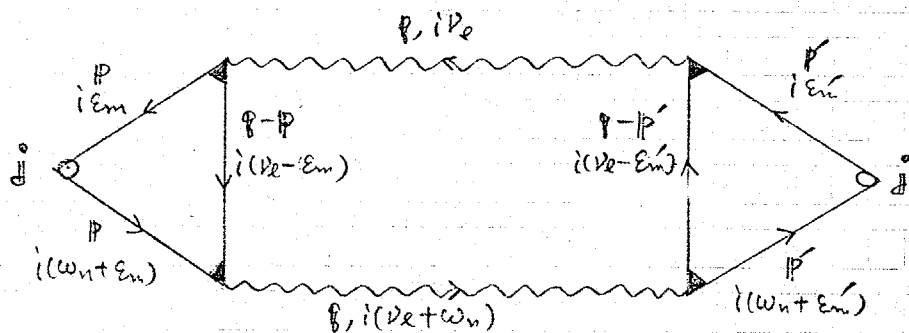 q, iνₑ
p
iεm
p′
iεm′
q−p
i(νₑ−εm)
q−p′
i(νₑ−εm′)
j
j
p
i(ωn+εm)
p′
i(ωn+εm′)
q, i(νₑ+ωn)